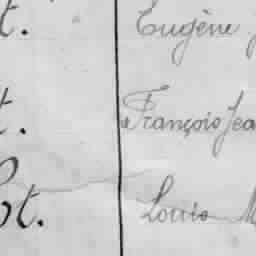 t. Eugène
t. François Jea
t. Louis M